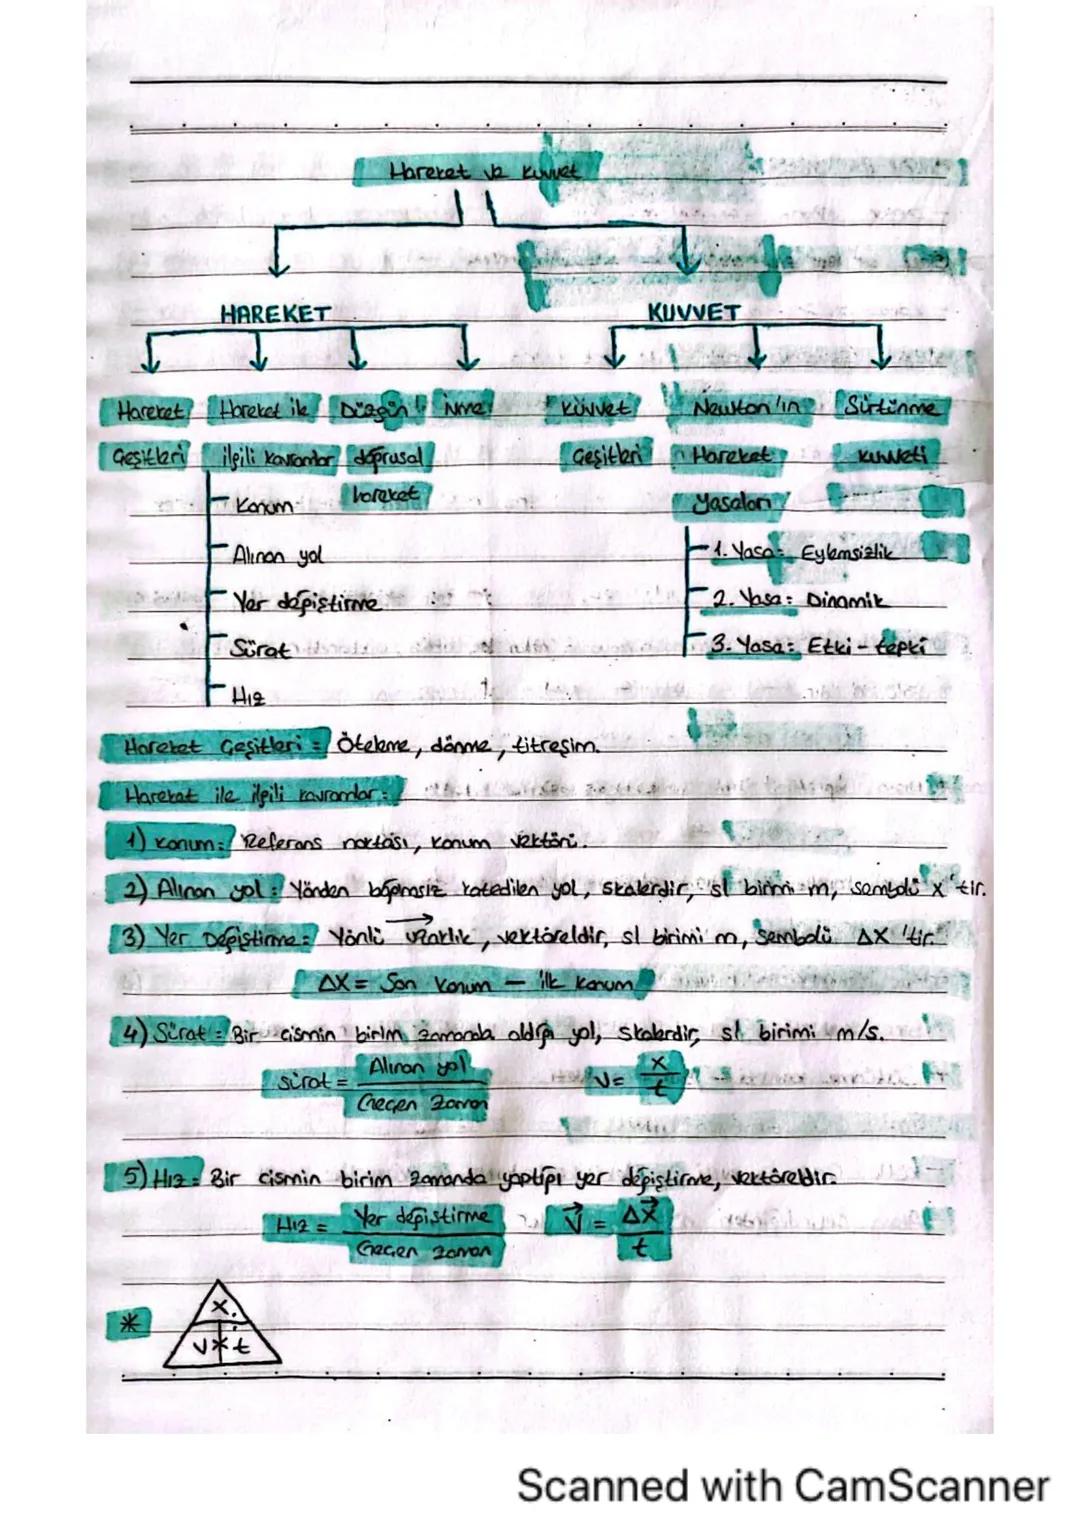 Hareket ve Kuvvet
HAREKET
KUVVET
Hareket Çeşitleri
Hareket ile ilgili kavramlar
Düzgün doğrusal hareket
İvme
Kuvvet Çeşitleri
Newton'ın Hareket Yasaları
Sürtünme Kuvveti
Konum
Alınan yol
Yer değiştirme
Sürat
Hız
1. Yasa: Eylemsizlik
2. Yasa: Dinamik
3. Yasa: Etki - tepki
Hareket Çeşitleri = Öteleme, dönme, titreşim.
Hareket ile ilgili kavramlar:
1) Konum: Referans noktası, konum vektörü.
2) Alınan yol: Yönden bağımsız katedilen yol, skalerdir, sI birimi m, sembolü x'tir.
3) Yer Değiştirme: Yönlü uzaklık, vektöreldir, sI birimi m, sembolü ΔX 'tir.
ΔX = Son Konum - ilk konum
4) Sürat = Bir cismin birim zamanda aldığı yol, skalerdir, sI birimi m/s.
Sürat = Alınan yol / Geçen Zaman V = x / t
5) Hız = Bir cismin birim zamanda yaptığı yer değiştirme, vektöreldir.
Hız = Yer değiştirme / Geçen zaman V = ΔX / t
* x
V * t
Scanned with CamScanner